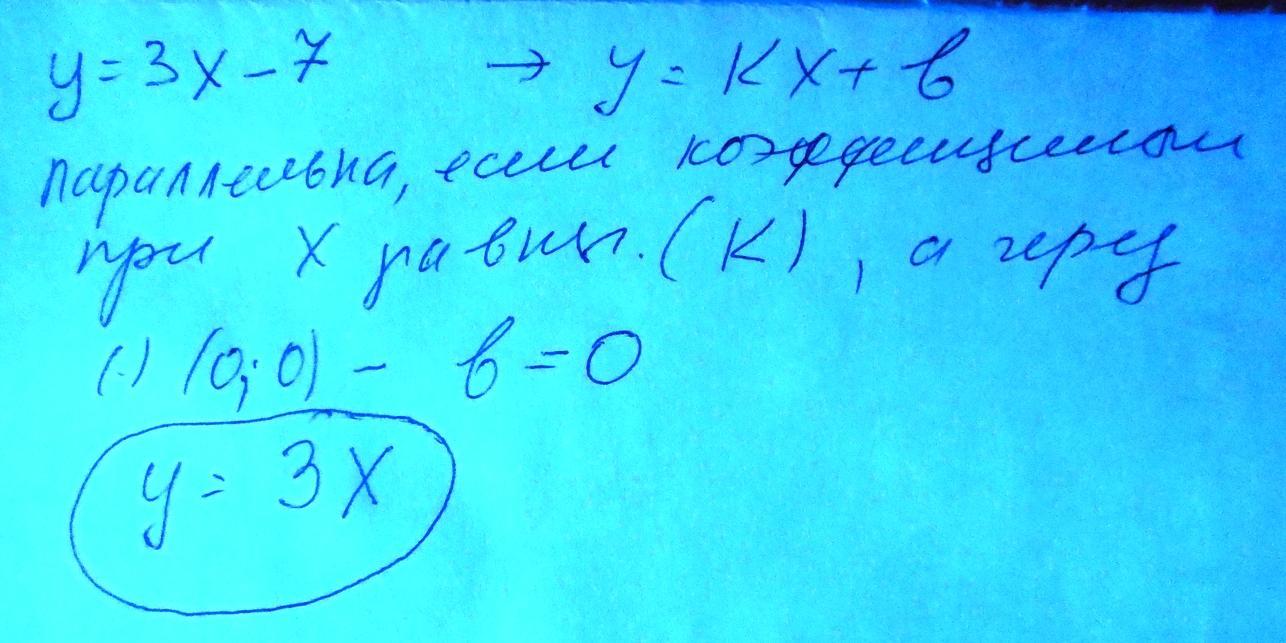 y = 3x - 7 → y = Kx + b
параллельна, если коэффициенты
при x равны. (K), а через
(·) (0; 0) - b = 0
y = 3x